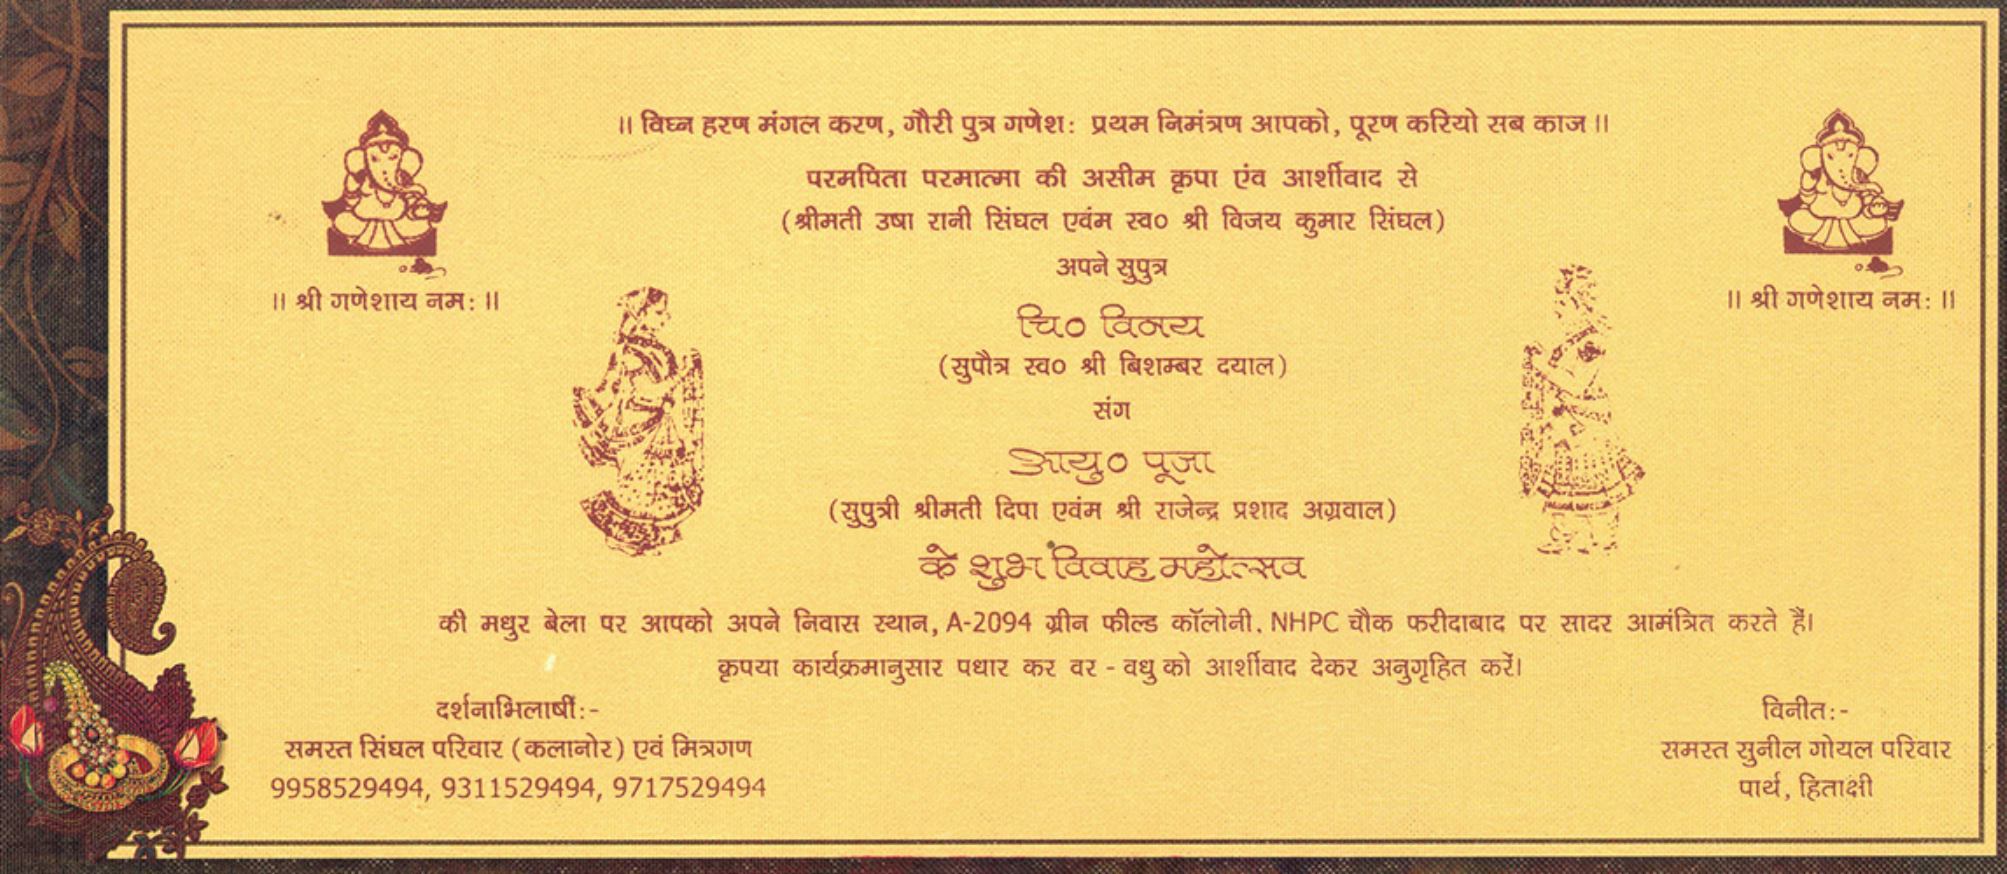 ॥ विघ्न हरण मंगल करण, गौरी पुत्र गणेश: प्रथम निमंत्रण आपको, पूरण करियो सब काज ॥
परमपिता परमात्मा की असीम कृपा एंव आर्शीवाद से
(श्रीमती उषा रानी सिंघल एवंम स्व० श्री विजय कुमार सिंघल)
अपने सुपुत्र
॥ श्री गणेशाय नम: ॥
॥ श्री गणेशाय नम: ॥
चि० विनय
(सुपौत्र स्व० श्री बिशम्बर दयाल)
संग
आयु० पूजा
(सुपुत्री श्रीमती दिपा एवंम श्री राजेन्द्र प्रशाद अग्रवाल)
के शुभ विवाह महोत्सव
की मधुर बेला पर आपको अपने निवास स्थान, A-2094 ग्रीन फील्ड कॉलोनी, NHPC चौक फरीदाबाद पर सादर आमंत्रित करते हैं।
कृपया कार्यक्रमानुसार पधार कर वर - वधु को आर्शीवाद देकर अनुगृहित करें।
दर्शनाभिलार्षी:-
समस्त सिंघल परिवार (कलानोर) एवं मित्रगण
9958529494, 9311529494, 9717529494
विनीत:-
समस्त सुनील गोयल परिवार
पार्थ, हिताक्षी